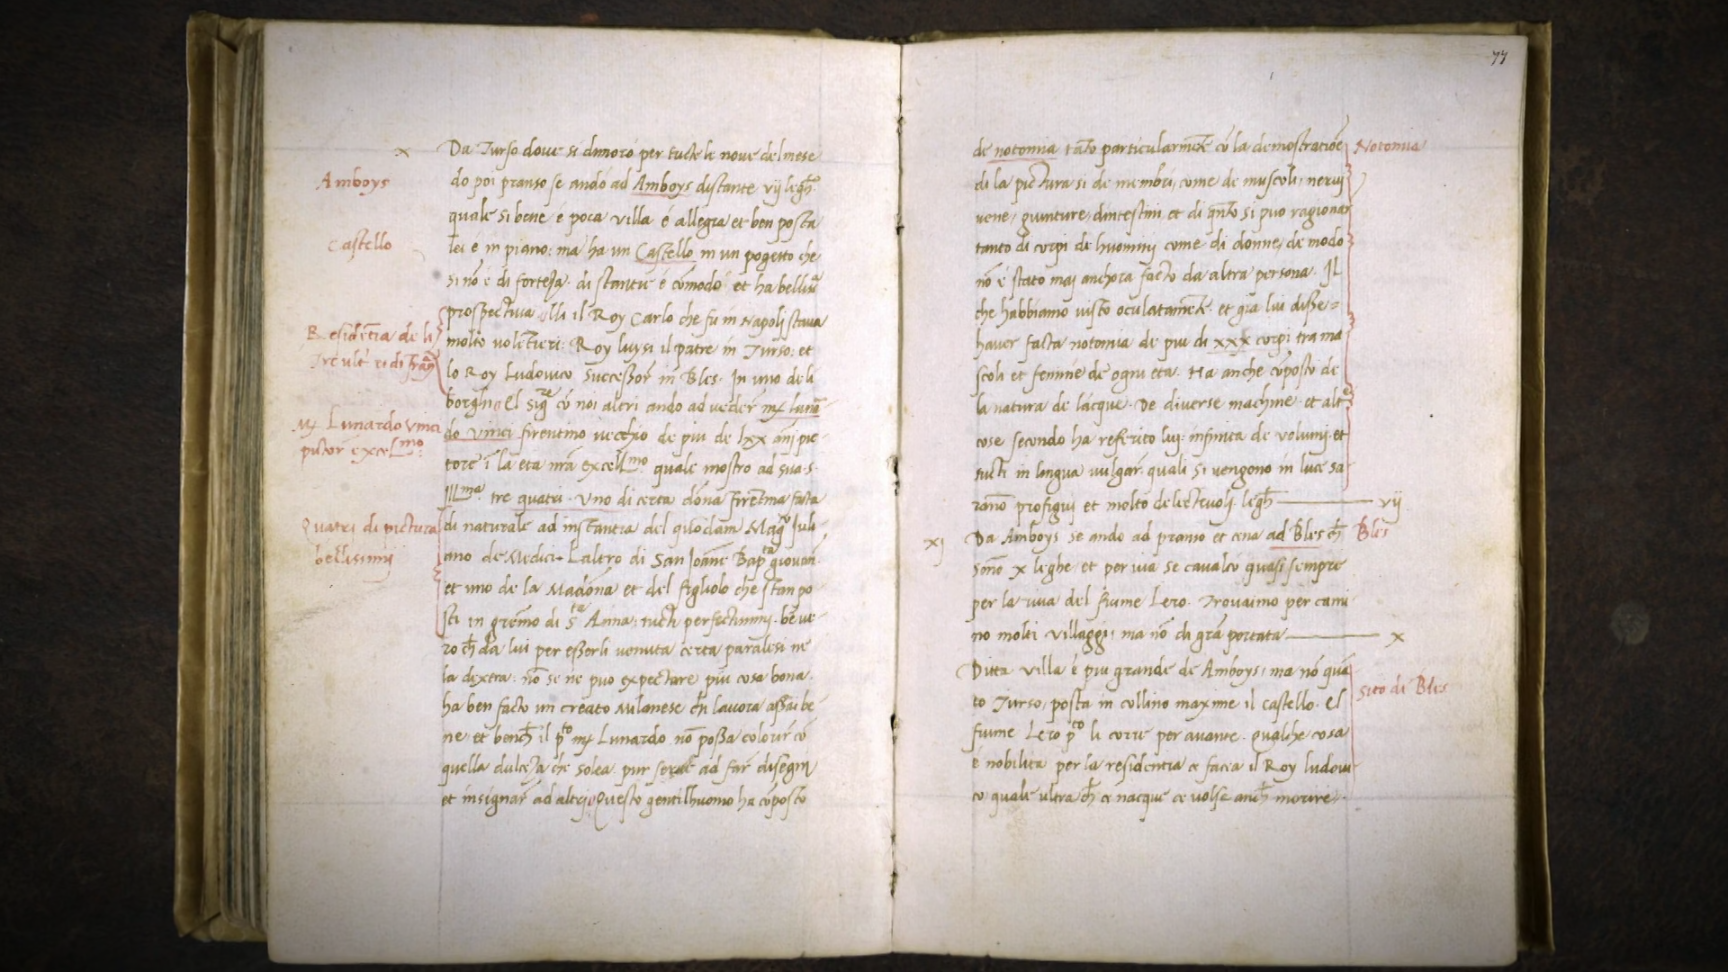 x
Amboys
Castello
Residentia de li
Tre ult. re di Franz
Mr Lunardo Vinci
pictor excel.mo
Quatri di pictura
bellissimi
Da Turso dove si dimoró per tucte le nove del mese
do poi pranso se andó ad Amboys distante vij legh.
quale si bene é poca villa é allegra et ben posta
lei é in piano: ma ha un Castello in un pogetto che
si nō é di forteza, di stantie é cōmodo, et ha bellis.a
prospectiva lli il Roy Carlo che fu in Napoli stava
molto volētieri: Roy Luysi il patre in Turso: et
lo Roy Ludovico successor in Bles. In uno de li
borghi el Sig.re cō noi altri ando ad veder mr Lunar
do Vinci firentino vecchio de piu de lxx anj pic
tore ī la etá nrā excell.mo quale mostro ad sua s.
Ill.ma tre quatri. Uno di certa dōna firētina facta
di naturale ad instantia del quōdam Mag.co Juli
ano de Medici. Laltro di San Joāne Bap.ta giovan.
et uno de la Madōna et del figliolo che stan po
sti in gremo di s.ta Anna: tucti perfectissimi. bē ve
ro ch̄ da lui per esserli venuta certa paralesi ne
la dextra: nō se ne puo expectare piu cosa bona.
ha ben facto un creato Milanese ch̄ lavora assai be
ne et bench̄ il p.to mr Lunardo nō possa colorir cō
quella dulceza che solea. pur serve ad far disegni
et insignar ad altrj. Questo gentilhuomo ha cōposto
77
de notomia tāto particularmēte cō la demostratiōe
di la pictura si de membri, come de muscoli, nervij
vene, giunture, dintestini et di qnto si puo ragionar
tanto di corpi de huominj come di donne, de modo
nō é stato maj anchora facto da altra persona. Il
che habbiamo visto oculatamēte. et gia lui disse
haver facta notomia de piu di xxx corpi tra ma
scoli et femine de ogni etá. Ha anche cōposto de
la natura de lacque. De diverse machine. et altre
cose secondo ha referito lui: infinita de volumi. et
tucti in lingua vulgar. quali si vengono in luce sa
ranō profiguj et molto delectevoli. legh̄ vij
Notomia
xj
Da Amboys se ando ad pranso et cena ad Bles ch̄
sonno x leghe et per via se cavalco quasi sempre
per la riva del fiume Lero. Trovaimo per cami
no molti villaggi: ma nō di grā portata x
Bles
Ditta villa é piu grande de Amboys: ma nō quā
to Turso: posta in collino maxime il castello. El
fiume Lero p.to li corre per avante. Qualche cosa
é nobilita per la residentia ce facea il Roy Ludovi
co quale ultra ch̄ ce nacque ce volse anch̄ morire.
Sito di Bles